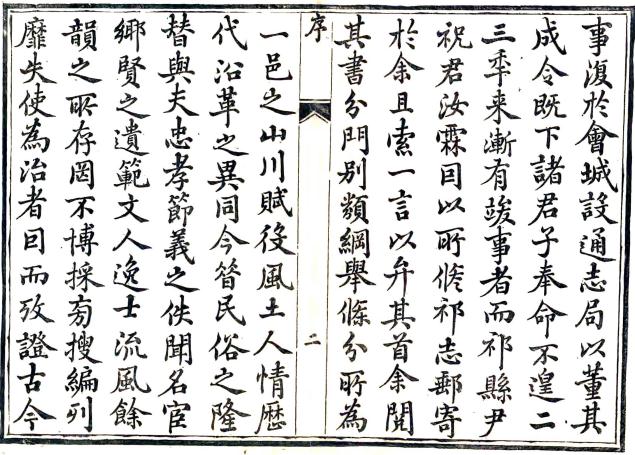 事復於會城設通志局以董其
成令既下諸君子奉命不遑二
三秊来漸有竣事者而祁縣尹
祝君汝霖囙以所修祁志郵寄
於余且索一言以弁其首余閱
其書分門别類綱舉條分所為
序
二
一邑之山川賦役風土人情歴
代沿革之異同今昔民俗之隆
替與夫忠孝節義之佚聞名宦
鄉賢之遺範文人逸士流風餘
韻之所存罔不博採旁搜編列
靡失使為治者囙而攷證古今